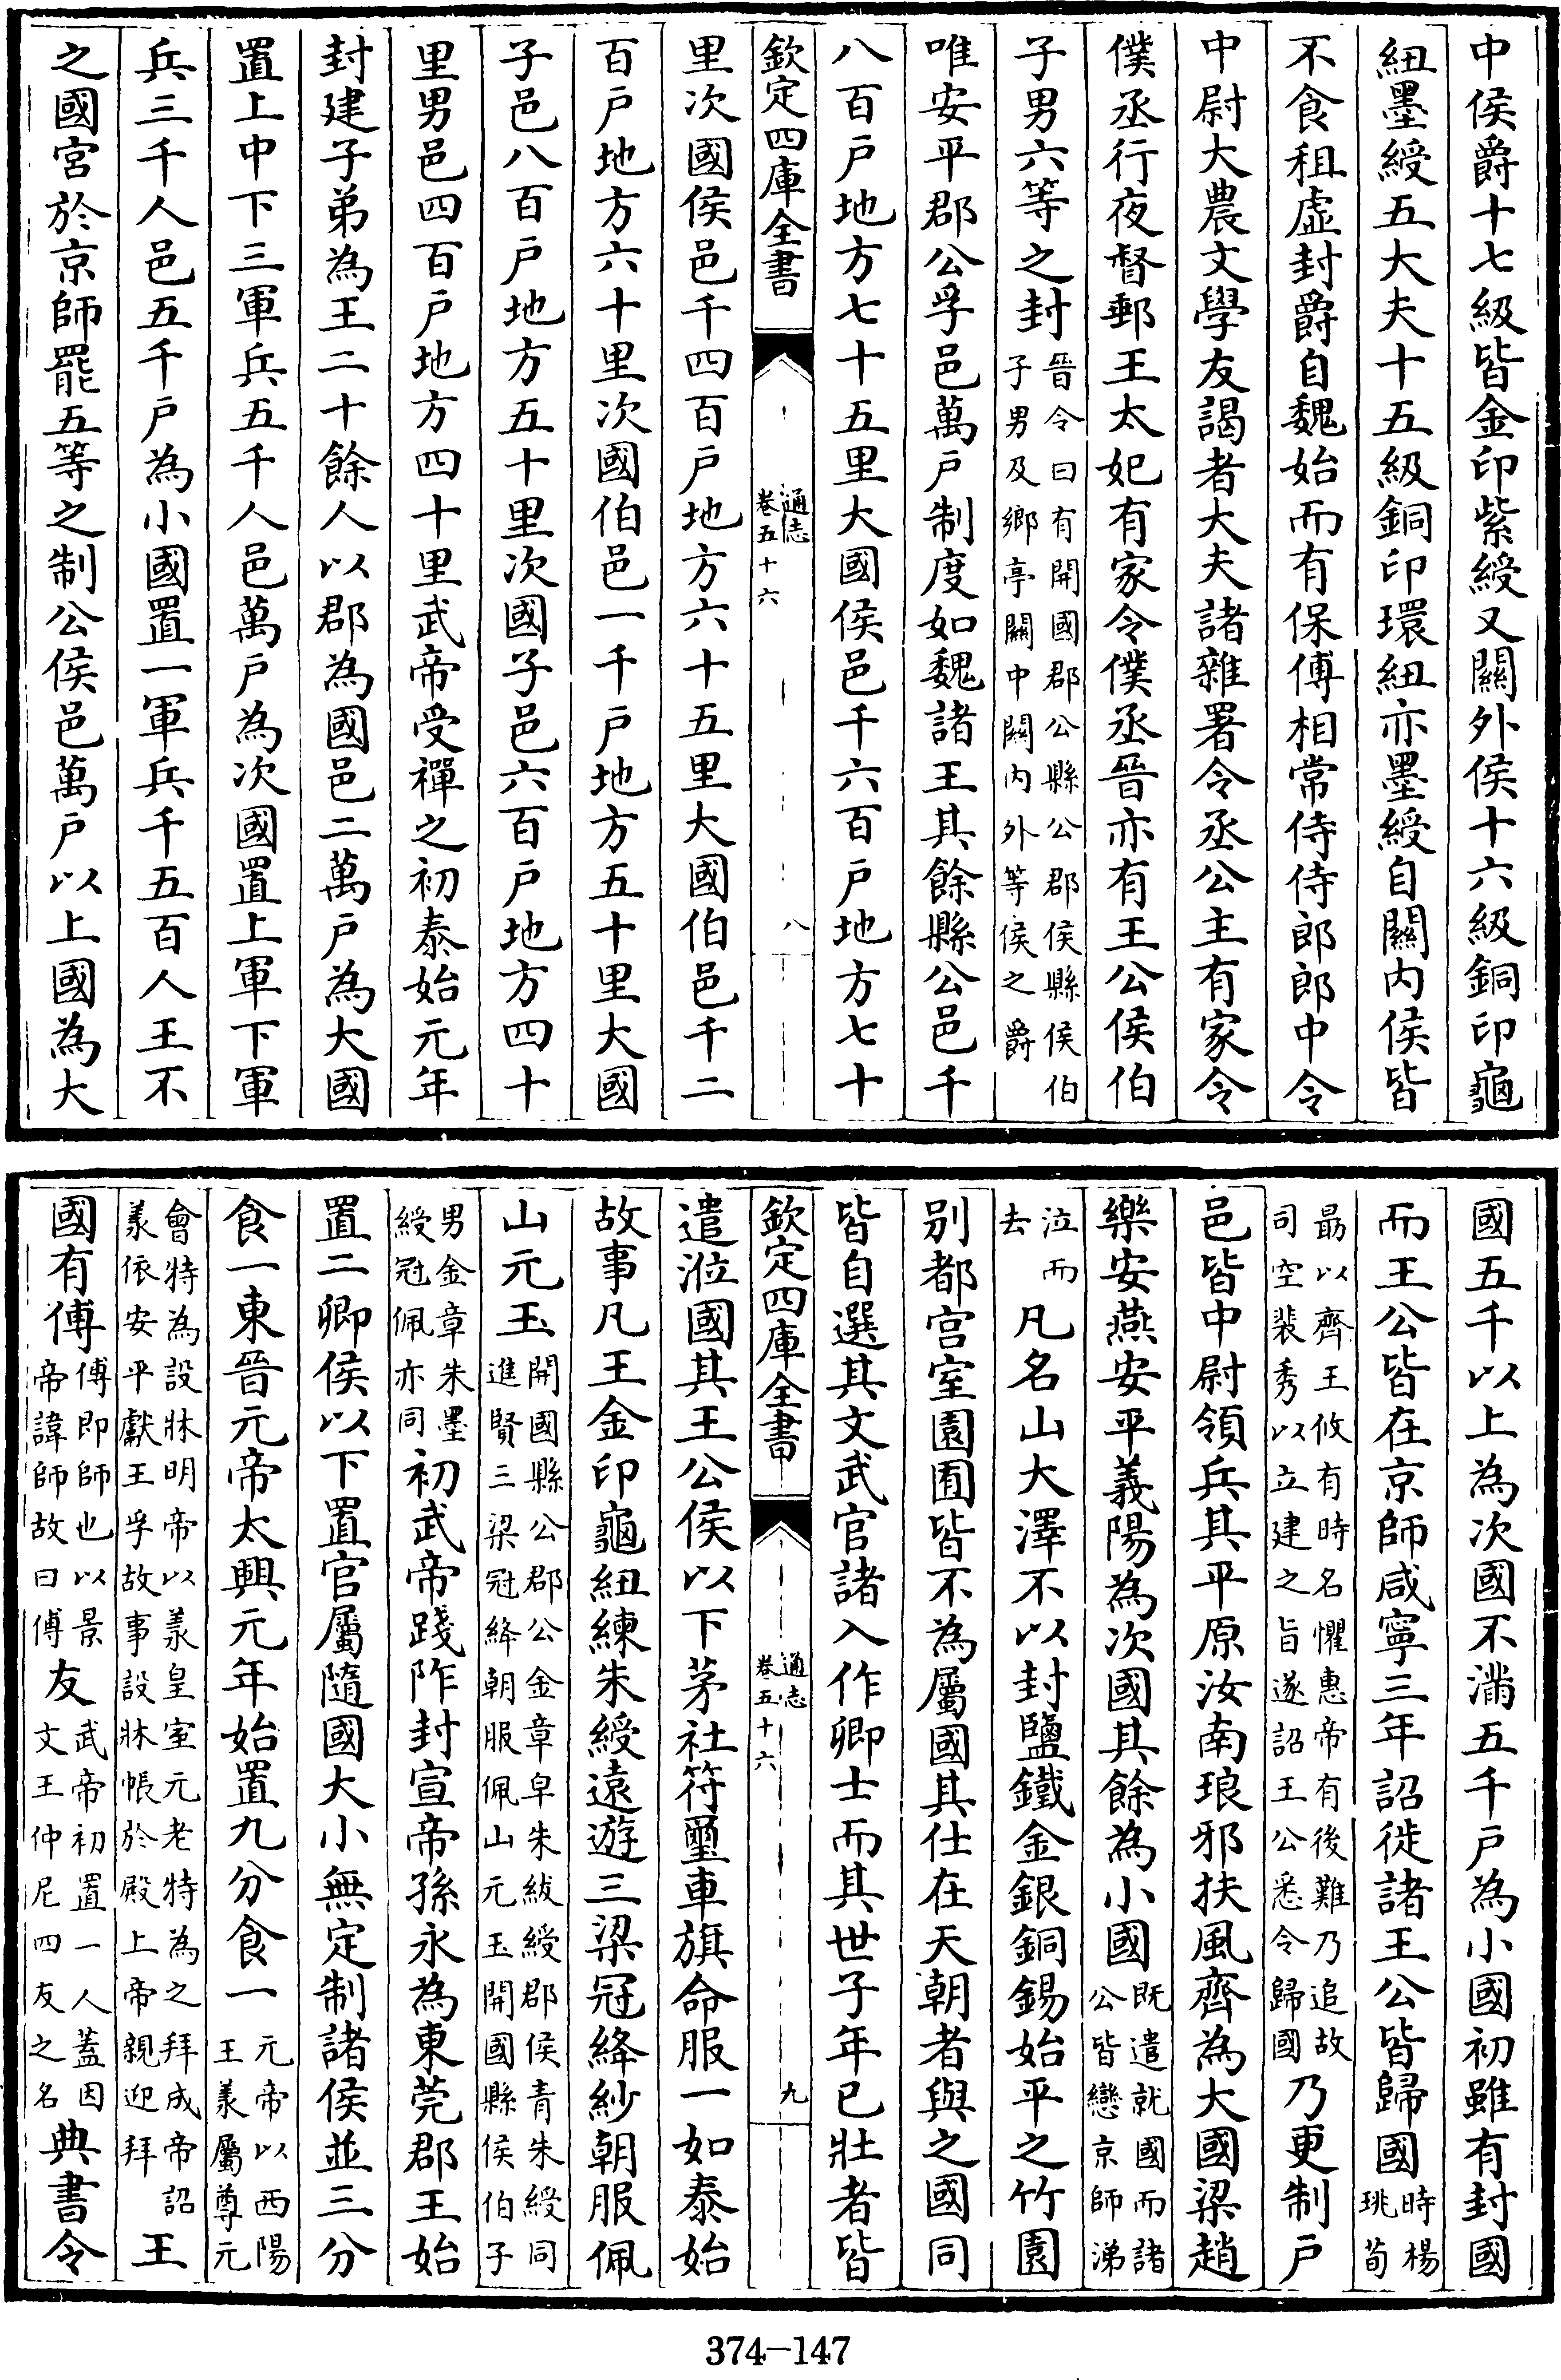 中侯爵十七級皆金印紫綬又關外侯十六級銅印龜
紐墨綬五大夫十五級銅印環紐亦墨綬自關内侯皆
不食租虛封爵自魏始而有保傅相常侍侍郎郎中令
中尉大農文學友謁者大夫諸雜署令丞公主有家令
僕丞行夜督郵王太妃有家令僕丞晉亦有王公侯伯
子男六等之封晉令曰有開國郡公縣公郡侯縣侯伯
子男及鄉亭關中關内外等侯之爵
唯安平郡公孚邑萬户制度如魏諸王其餘縣公邑千
八百户地方七十五里大國侯邑千六百户地方七十
欽定四庫全書
通志
卷五十六
八
里次國侯邑千四百户地方六十五里大國伯邑千二
百户地方六十里次國伯邑一千户地方五十里大國
子邑八百户地方五十里次國子邑六百户地方四十
里男邑四百户地方四十里武帝受禪之初泰始元年
封建子弟為王二十餘人以郡為國邑二萬户為大國
置上中下三軍兵五千人邑萬户為次國置上軍下軍
兵三千人邑五千户為小國置一軍兵千五百人王不
之國官於京師罷五等之制公侯邑萬户以上國為大
國五千以上為次國不滿五千户為小國初雖有封國
而王公皆在京師咸寧三年詔徙諸王公皆歸國時楊
珧荀
勗以齊王攸有時名懼惠帝有後難乃追故
司空裴秀以立建之旨遂詔王公悉令歸國乃更制户
邑皆中尉領兵其平原汝南琅邪扶風齊為大國梁趙
樂安燕安平義陽為次國其餘為小國既遣就國而諸
公皆戀京師涕
泣而
去凡名山大澤不以封鹽鐵金銀銅錫始平之竹園
别都宫室園囿皆不為屬國其仕在天朝者與之國同
皆自選其文武官諸入作卿士而其世子年已壯者皆
欽定四庫全書
通志
卷五十六
九
遣涖國其王公侯以下茅社符璽車旗命服一如泰始
故事凡王金印龜紐練朱綬遠遊三梁冠絳紗朝服佩
山元玉開國縣公郡公金章皁朱紱綬郡侯青朱綬同
進賢三梁冠絳朝服佩山元玉開國縣侯伯子
男金章朱墨
綬冠佩亦同初武帝踐阼封宣帝孫永為東莞郡王始
置二卿侯以下置官屬隨國大小無定制諸侯並三分
食一東晉元帝太興元年始置九分食一元帝以西陽
王羕屬尊元
會特為設牀明帝以羕皇室元老特為之拜成帝詔
羕依安平獻王孚故事設牀帳於殿上帝親迎拜王
國有傅傅即師也以景
帝諱師故曰傅友武帝初置一人蓋因
文王仲尼四友之名典書令
374-147